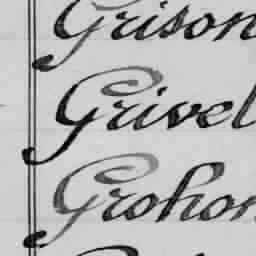 Grison
Grivel
Grohon